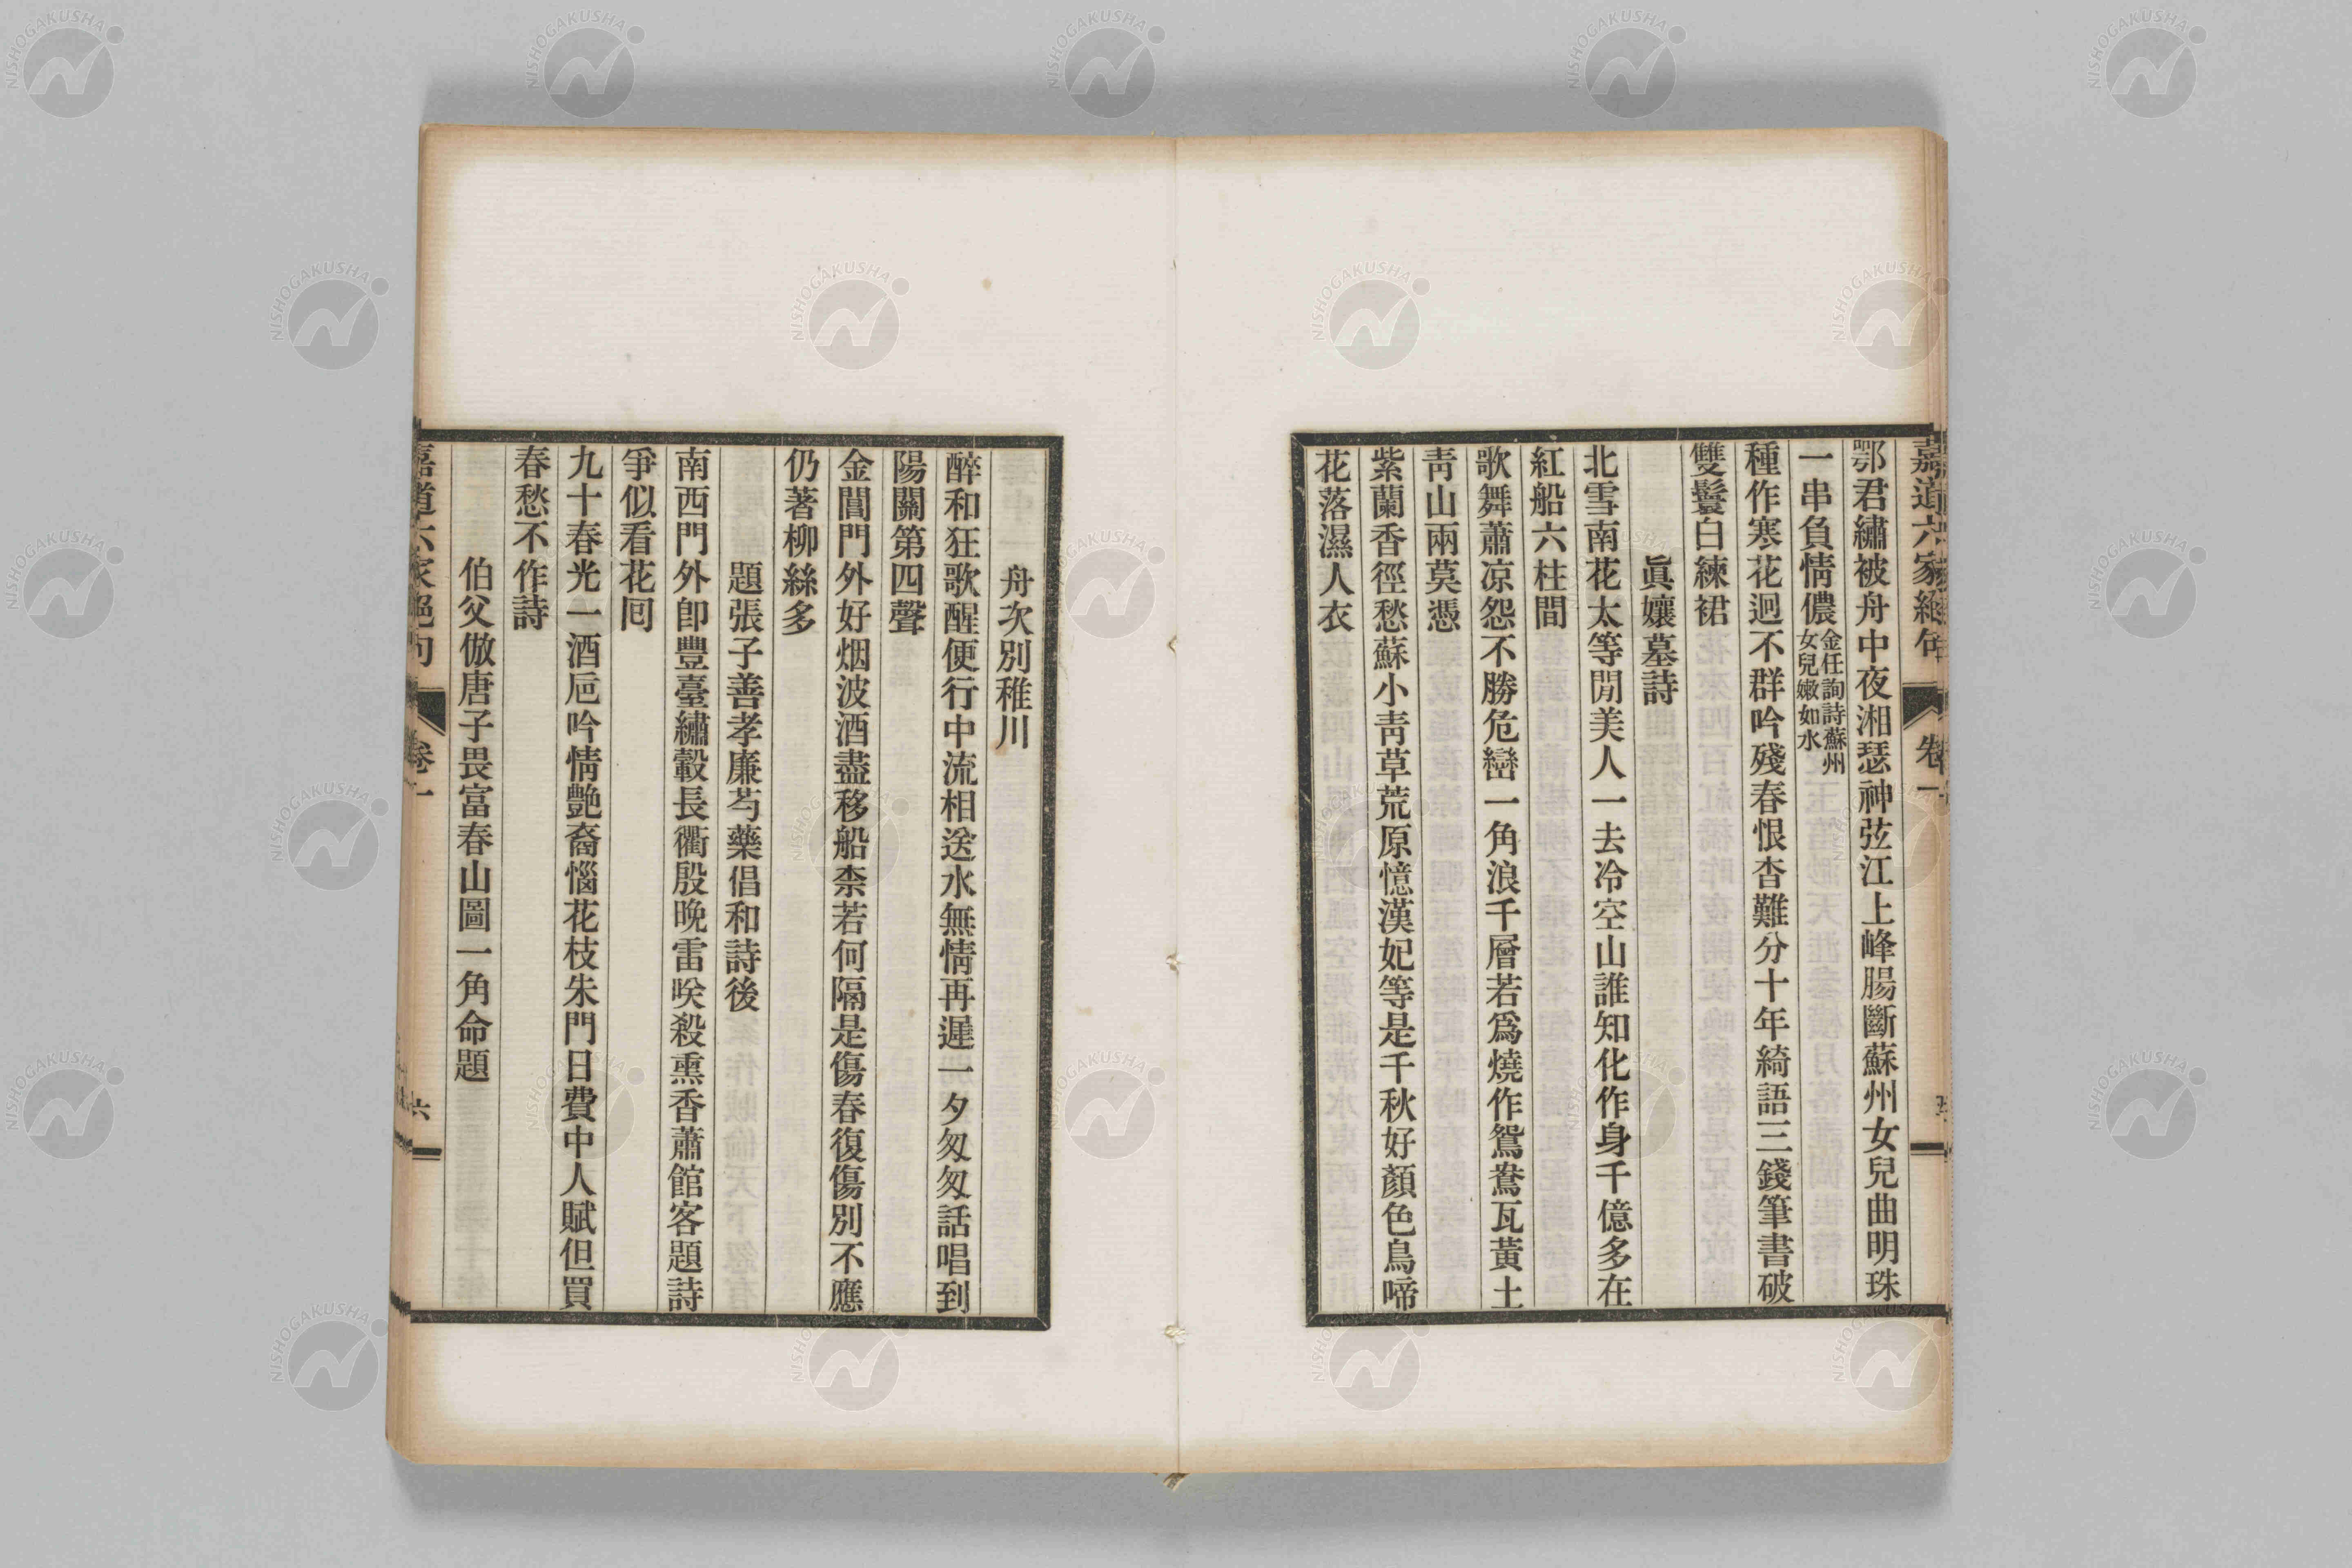 嘉道六家絕句 卷一
鄂君繡被舟中夜湘瑟神弦江上峰腸斷蘇州女兒曲明珠
一串負情儂金任詢詩蘇州女兒嫩如水
種作寒花迥不群吟殘春恨杳難分十年綺語三錢筆書破
雙鬟白練裙
眞孃墓詩
北雪南花太等閒美人一去冷空山誰知化作身千億多在
紅船六柱間
歌舞蕭凉怨不勝危巒一角浪千層若爲燒作鴛鴦瓦黃土
靑山兩莫憑
紫蘭香徑愁蘇小靑草荒原憶漢妃等是千秋好顏色鳥啼
花落濕人衣
舟次別稚川
醉和狂歌醒便行中流相送水無情再遲一夕匆匆話唱到
陽關第四聲
金閶門外好烟波酒盡移船柰若何隔是傷春復傷別不應
仍著柳絲多
題張子善孝廉芍藥倡和詩後
南西門外卽豐臺繡轂長衢殷晚雷唉殺熏香蕭館客題詩
爭似看花囘
九十春光一酒卮吟情艷裔惱花枝朱門日費中人賦但買
春愁不作詩
伯父倣唐子畏富春山圖一角命題
嘉道六家絕句 卷一 六
NISHOGAKUSHA